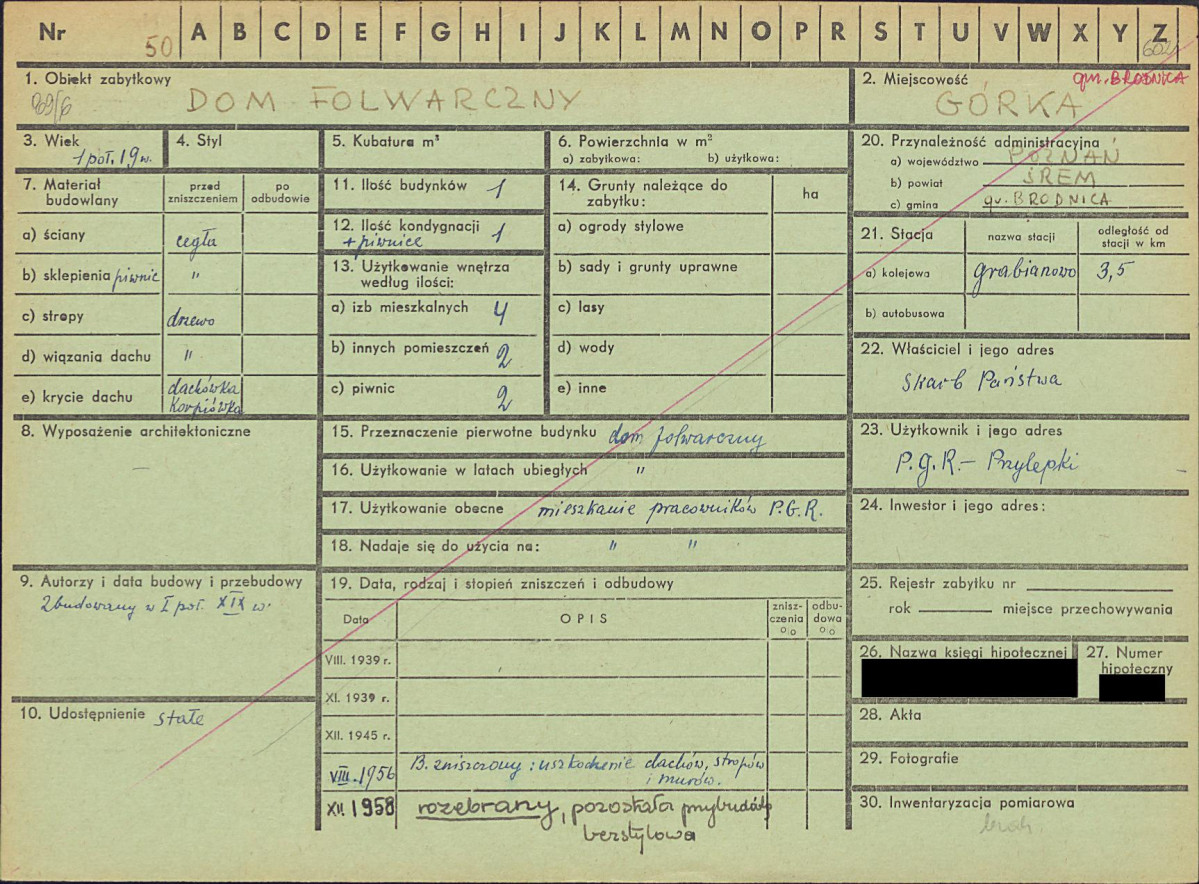 Nr 50 A B C D E F G H I J K L M N O P R S T U V W X Y Z
602
1. Obiekt zabytkowy
DOM FOLWARCZNY
2. Miejscowość gm. BRODNICA
GÓRKA
3. Wiek
1 poł. 19 w.
4. Styl
5. Kubatura m³
6. Powierzchnia w m²
a) zabytkowa: b) użytkowa:
20. Przynależność administracyjna
a) województwo POZNAŃ
b) powiat ŚREM
c) gmina gm. BRODNICA
7. Materiał budowlany
przed zniszczeniem
po odbudowie
a) ściany cegła
b) sklepienia piwnic "
c) stropy drzewo
d) wiązania dachu "
e) krycie dachu dachówka
karpiówka
11. Ilość budynków 1
12. Ilość kondygnacji 1
+ piwnice
13. Użytkowanie wnętrza
według ilości:
a) izb mieszkalnych 4
b) innych pomieszczeń 2
c) piwnic 2
14. Grunty należące do
zabytku:
ha
a) ogrody stylowe
b) sady i grunty uprawne
c) lasy
d) wody
e) inne
21. Stacja
nazwa stacji
odległość od
stacji w km
a) kolejowa Grabianowo 3,5
b) autobusowa
22. Właściciel i jego adres
Skarb Państwa
8. Wyposażenie architektoniczne
–
15. Przeznaczenie pierwotne budynku dom folwarczny
16. Użytkowanie w latach ubiegłych "
17. Użytkowanie obecne mieszkanie pracowników P.G.R.
18. Nadaje się do użycia na: " "
23. Użytkownik i jego adres
P.G.R. – Przylepki
24. Inwestor i jego adres:
9. Autorzy i data budowy i przebudowy
Zbudowany w I poł. XIX w.
10. Udostępnienie stałe
19. Data, rodzaj i stopień zniszczeń i odbudowy
Data
OPIS
znisz-
czenia
%
odbu-
dowa
%
VIII. 1939 r.
XI. 1939 r.
XII. 1945 r.
VIII. 1956 B. zniszczony: uszkodzenie dachów, stropów
i murów.
XII. 1958 rozebrany, pozostała przybudówka
bezstylowa
25. Rejestr zabytku nr
rok miejsce przechowywania
26. Nazwa księgi hipotecznej
27. Numer
hipoteczny
28. Akta
29. Fotografie
30. Inwentaryzacja pomiarowa
brak.